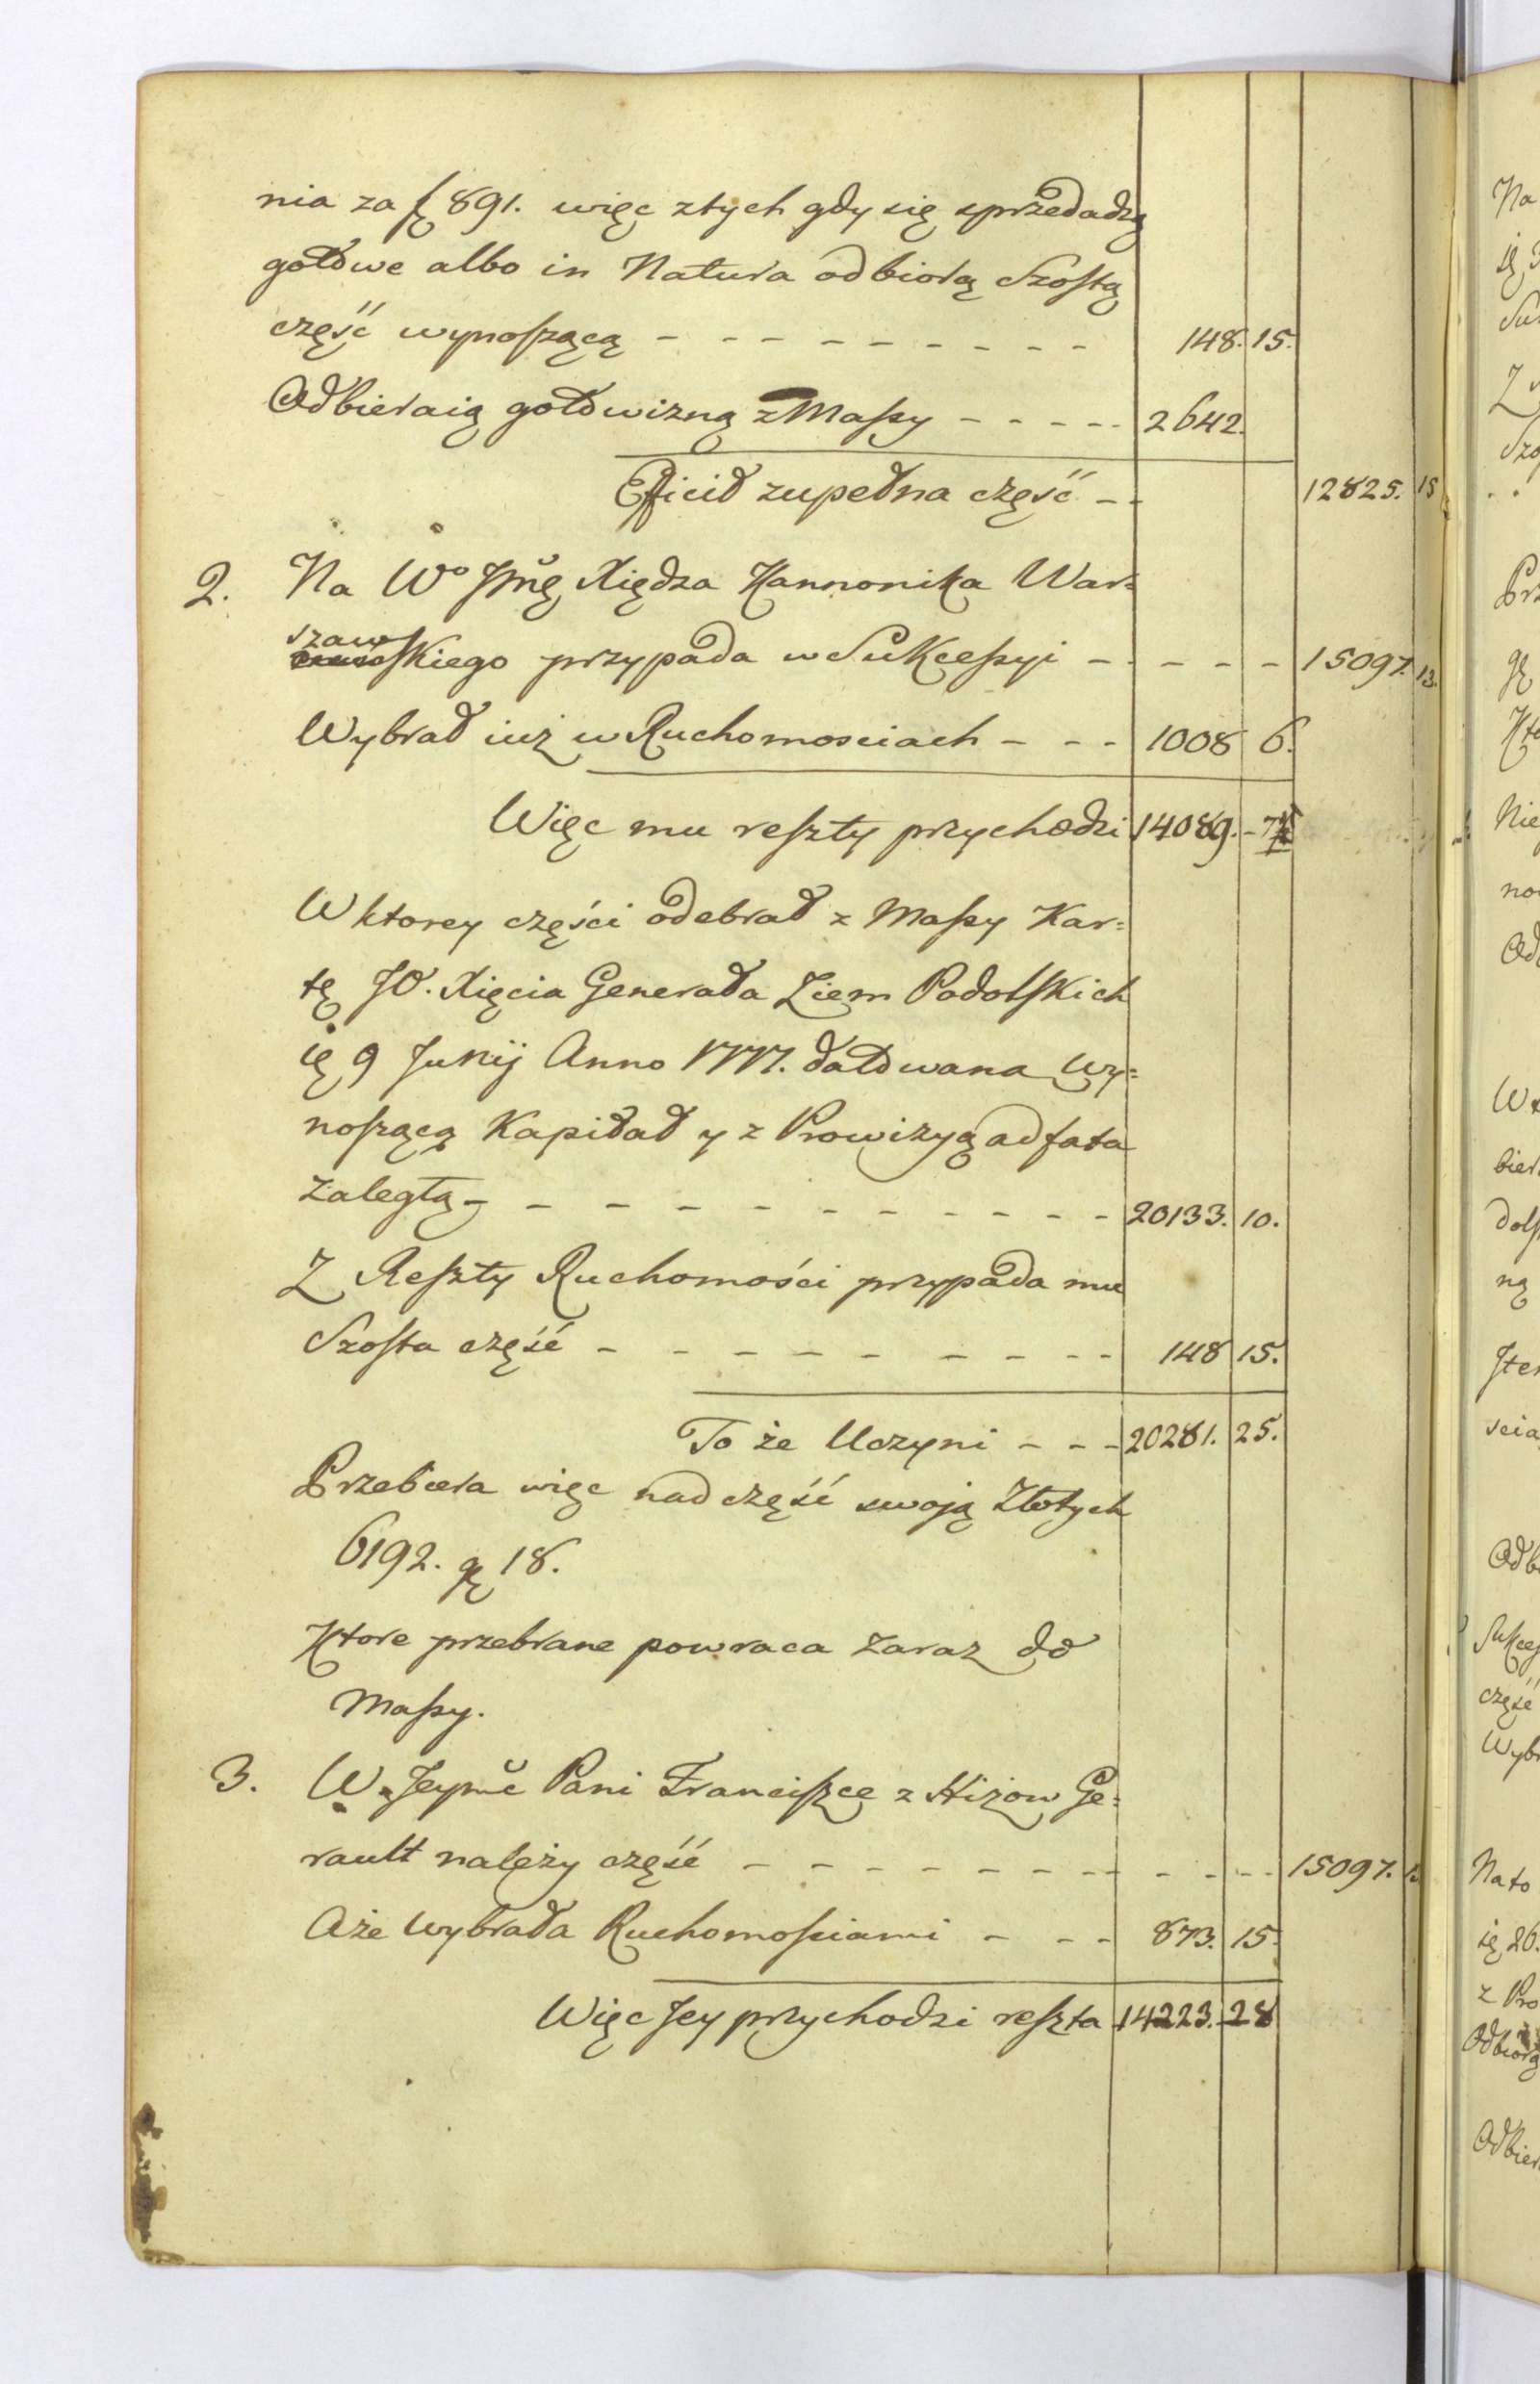 nia za f 891. więc ztych gdy się sprzedadzą
gotowe albo in Natura odbiorą Szostą
część wynoszącą - - - - - - - - - 148. 15.
Odbieraią gotowizną z Massy - - - - - 2642.
Efficit zupełna część - - 12825. 15
2. Na Wo Jmć Xiędza Kannonika War=
szawskiego przypada w Sukcessyi - - - - 15097. 13.
Wybrał iuż w Ruchomosciach - - - 1008 6.
Więc mu reszty przychodzi 14089. - 7
W ktorey części odebrał z Massy Kar=
tę JO. Xięcia Generała Ziem Podolskich
9 Junij Anno 1777. datowana wy=
noszącą Kapitał y z Prowizyą ad fata
zaległą - - - - - - - - - - 20133. 10.
Z Reszty Ruchomości przypada mu
Szosta część - - - - - - - - - 148 15.
To że Uczyni - - - 20281. 25.
Przebiera więc nad część swoją Złotych
6192. g 18.
Ktore przebrane powraca zaraz do
Massy.
3. W. Jeymć Pani Franciszce z Hiżow Ge=
rault należy część - - - - - - - - - - - 15097.
Aże wybrała Ruchomosciami - - - 873. 15
Więc Jey przychodzi reszta 14223. 28